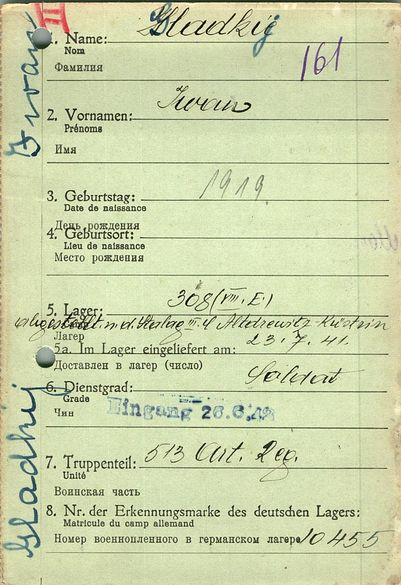 II
Iwan
1. Name: Gladkij
Nom
161
Фамилия
2. Vornamen: Iwan
Prénoms
Имя
3. Geburtstag: 1919
Date de naissance
День рождения
4. Geburtsort:
Lieu de naissance
Место рождения
5. Lager: 308 (VIII. E.)
Stalag III C Altdrewitz Küstrin
Лагер
5a. Im Lager eingeliefert am: 23. 7. 41.
Доставлен в лагер (число)
6. Dienstgrad: Soldat
Grade
Чин
Eingang 26.6.43
7. Truppenteil: 513 Art. Reg.
Unité
Воинская часть
8. Nr. der Erkennungsmarke des deutschen Lagers:
Matricule du camp allemand
Номер военнопленного в германском лагере 10455
Gladkij